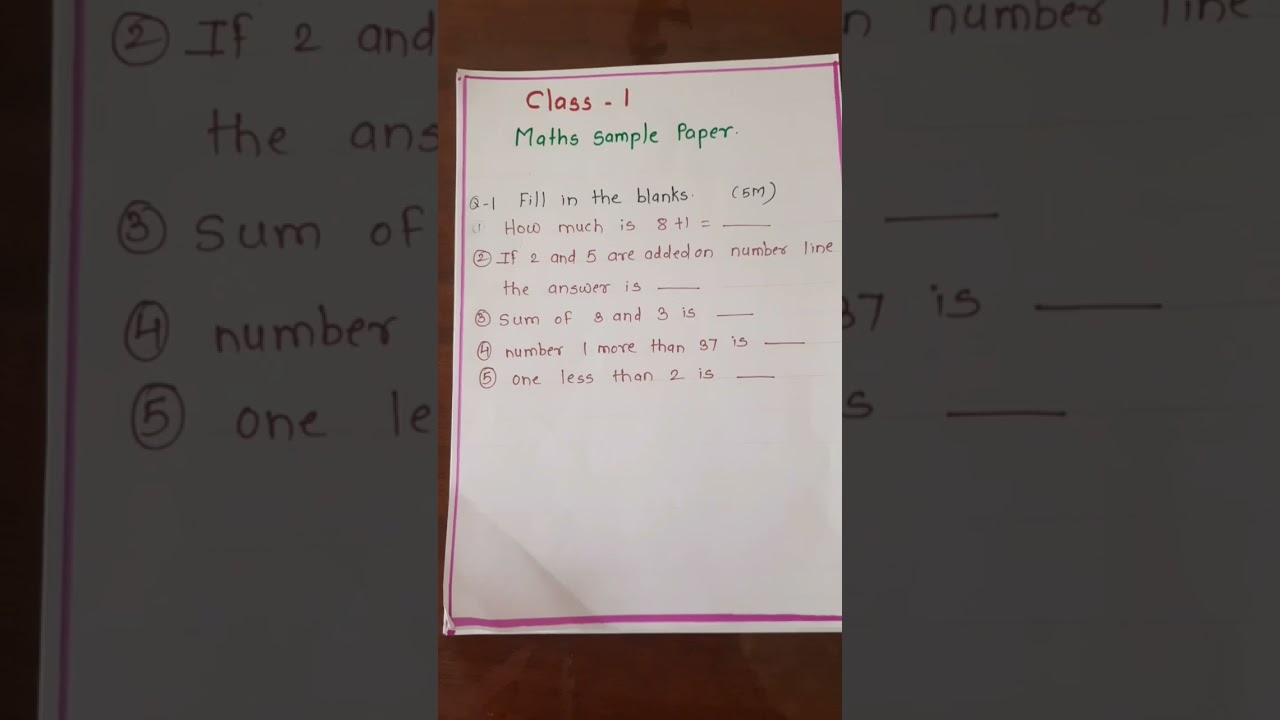 Class - 1
Maths Sample Paper.
Q-1 Fill in the blanks. (5M)
① How much is 8+1 = ____
② If 2 and 5 are added on number line
the answer is ____
③ Sum of 3 and 3 is ____
④ number 1 more than 37 is ____
⑤ one less than 2 is ____